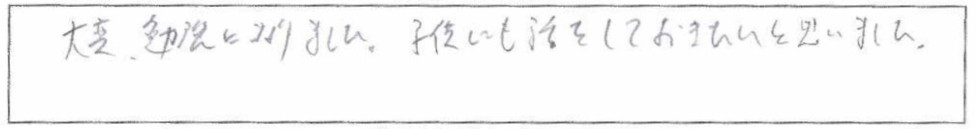 大変、勉強になりました。子供にも話をしておきたいと思いました。